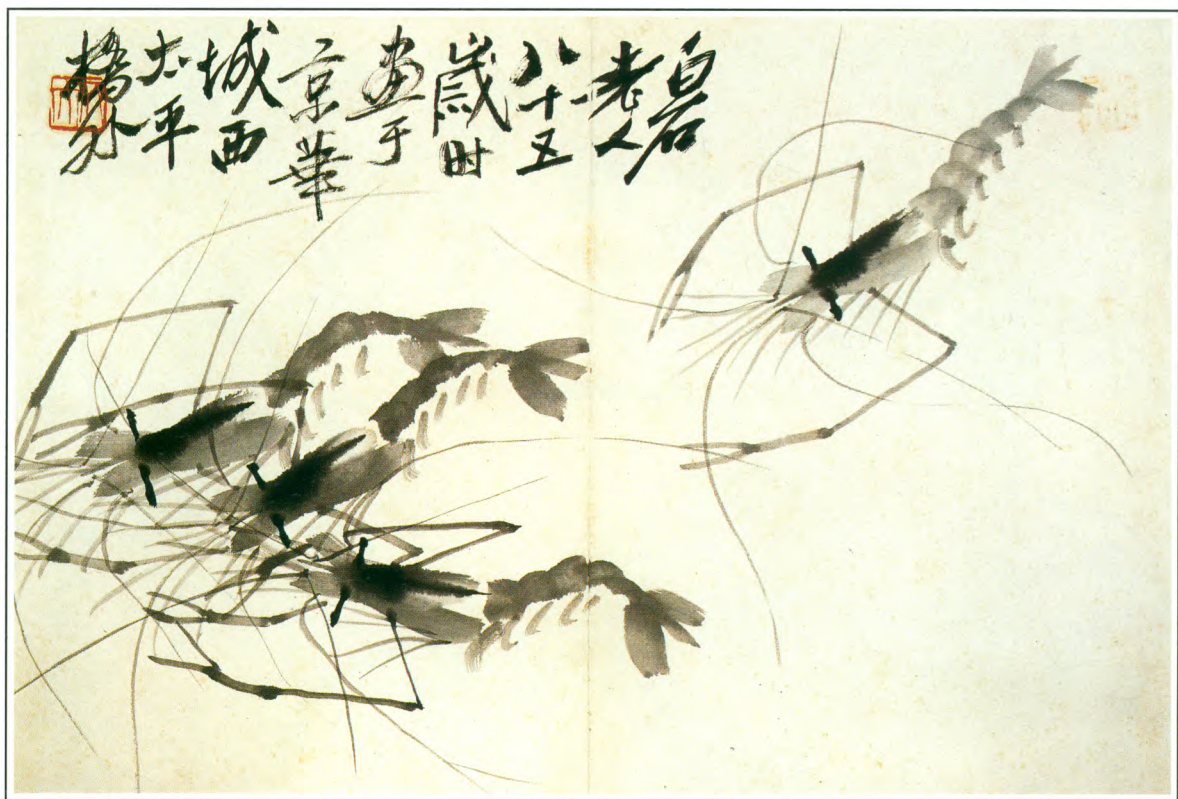 白石
老人
八十五
歲时
画于
京華
城西
太平
橋外